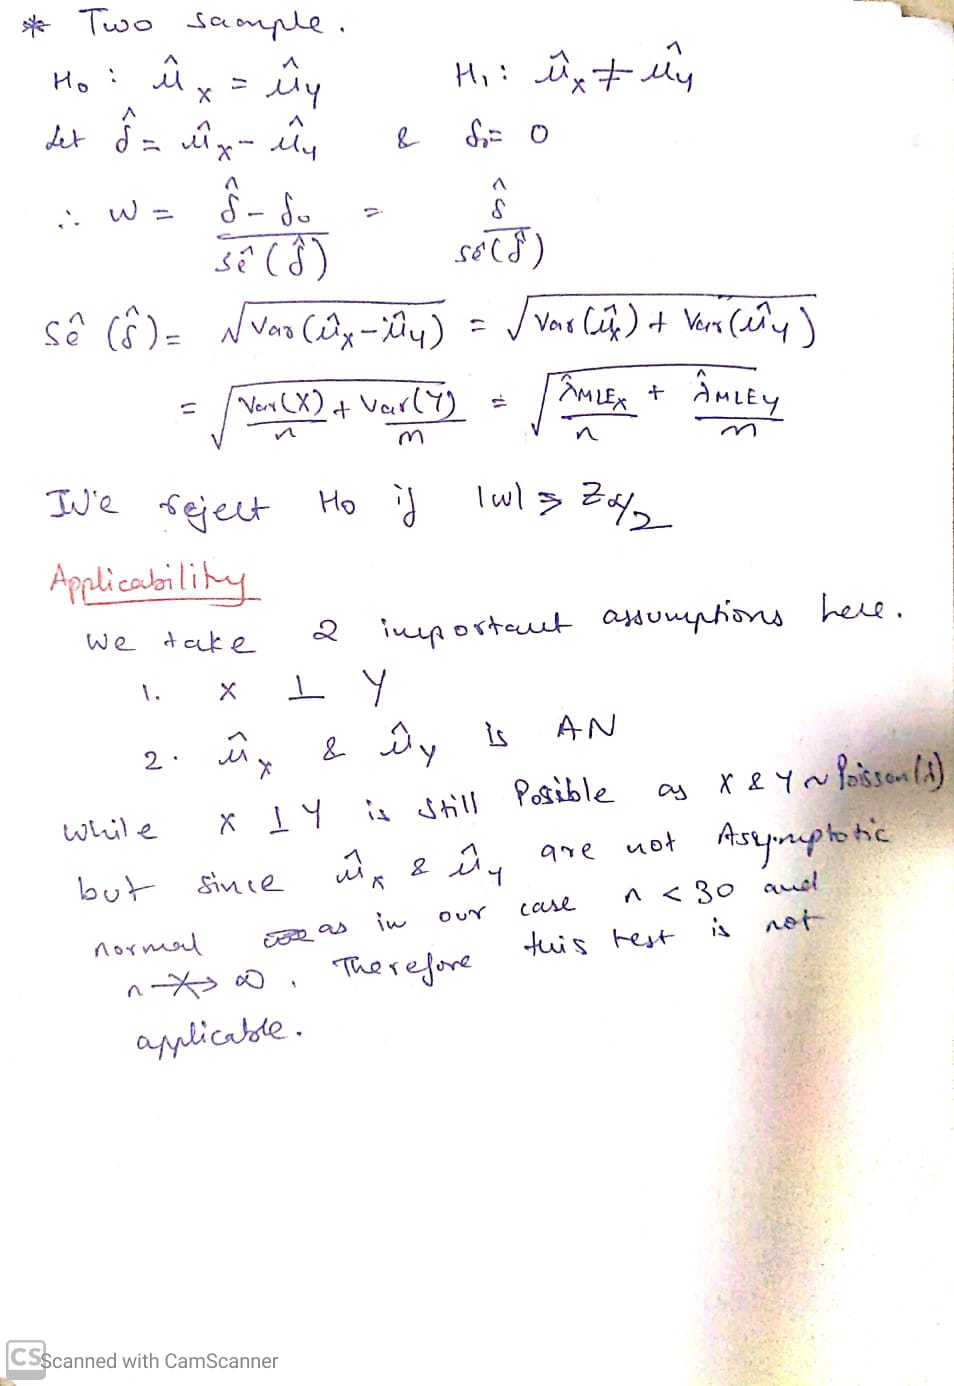 * Two sample.
H₀ : μ̂x = μ̂y H₁ : μ̂x ≠ μ̂y
Let δ̂ = μ̂x - μ̂y & δ₀ = 0
∴ W = (δ̂ - δ₀) / sê(δ̂) = δ̂ / sê(δ̂)
sê(δ̂) = √(Var(μ̂x - μ̂y)) = √(Var(μ̂x) + Var(μ̂y))
= √(Var(X)/n + Var(Y)/m) = √(λ̂MLEx/n + λ̂MLEy/m)
We reject H₀ if |w| > Zα/2
Applicability
We take 2 important assumptions here.
1. X ⊥ Y
2. μ̂x & μ̂y is AN
While X ⊥ Y is still Possible as X & Y ~ Poisson(λ)
but since μ̂x & μ̂y are not Asymptotic
normal as in our case n < 30 and
n ↛ ∞. Therefore this test is not
applicable.
CS Scanned with CamScanner